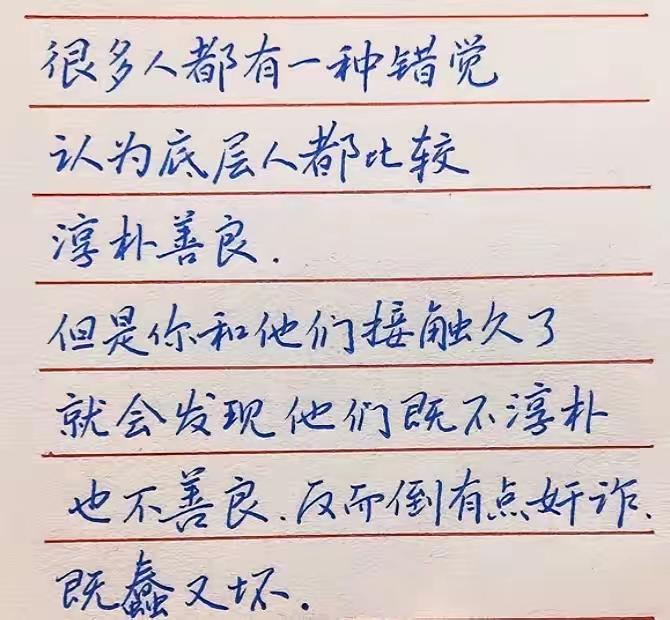 很多人都有一种错觉
认为底层人都比较
淳朴善良.
但是你和他们接触久了
就会发现他们既不淳朴
也不善良.反而倒有点奸诈.
既蠢又坏.